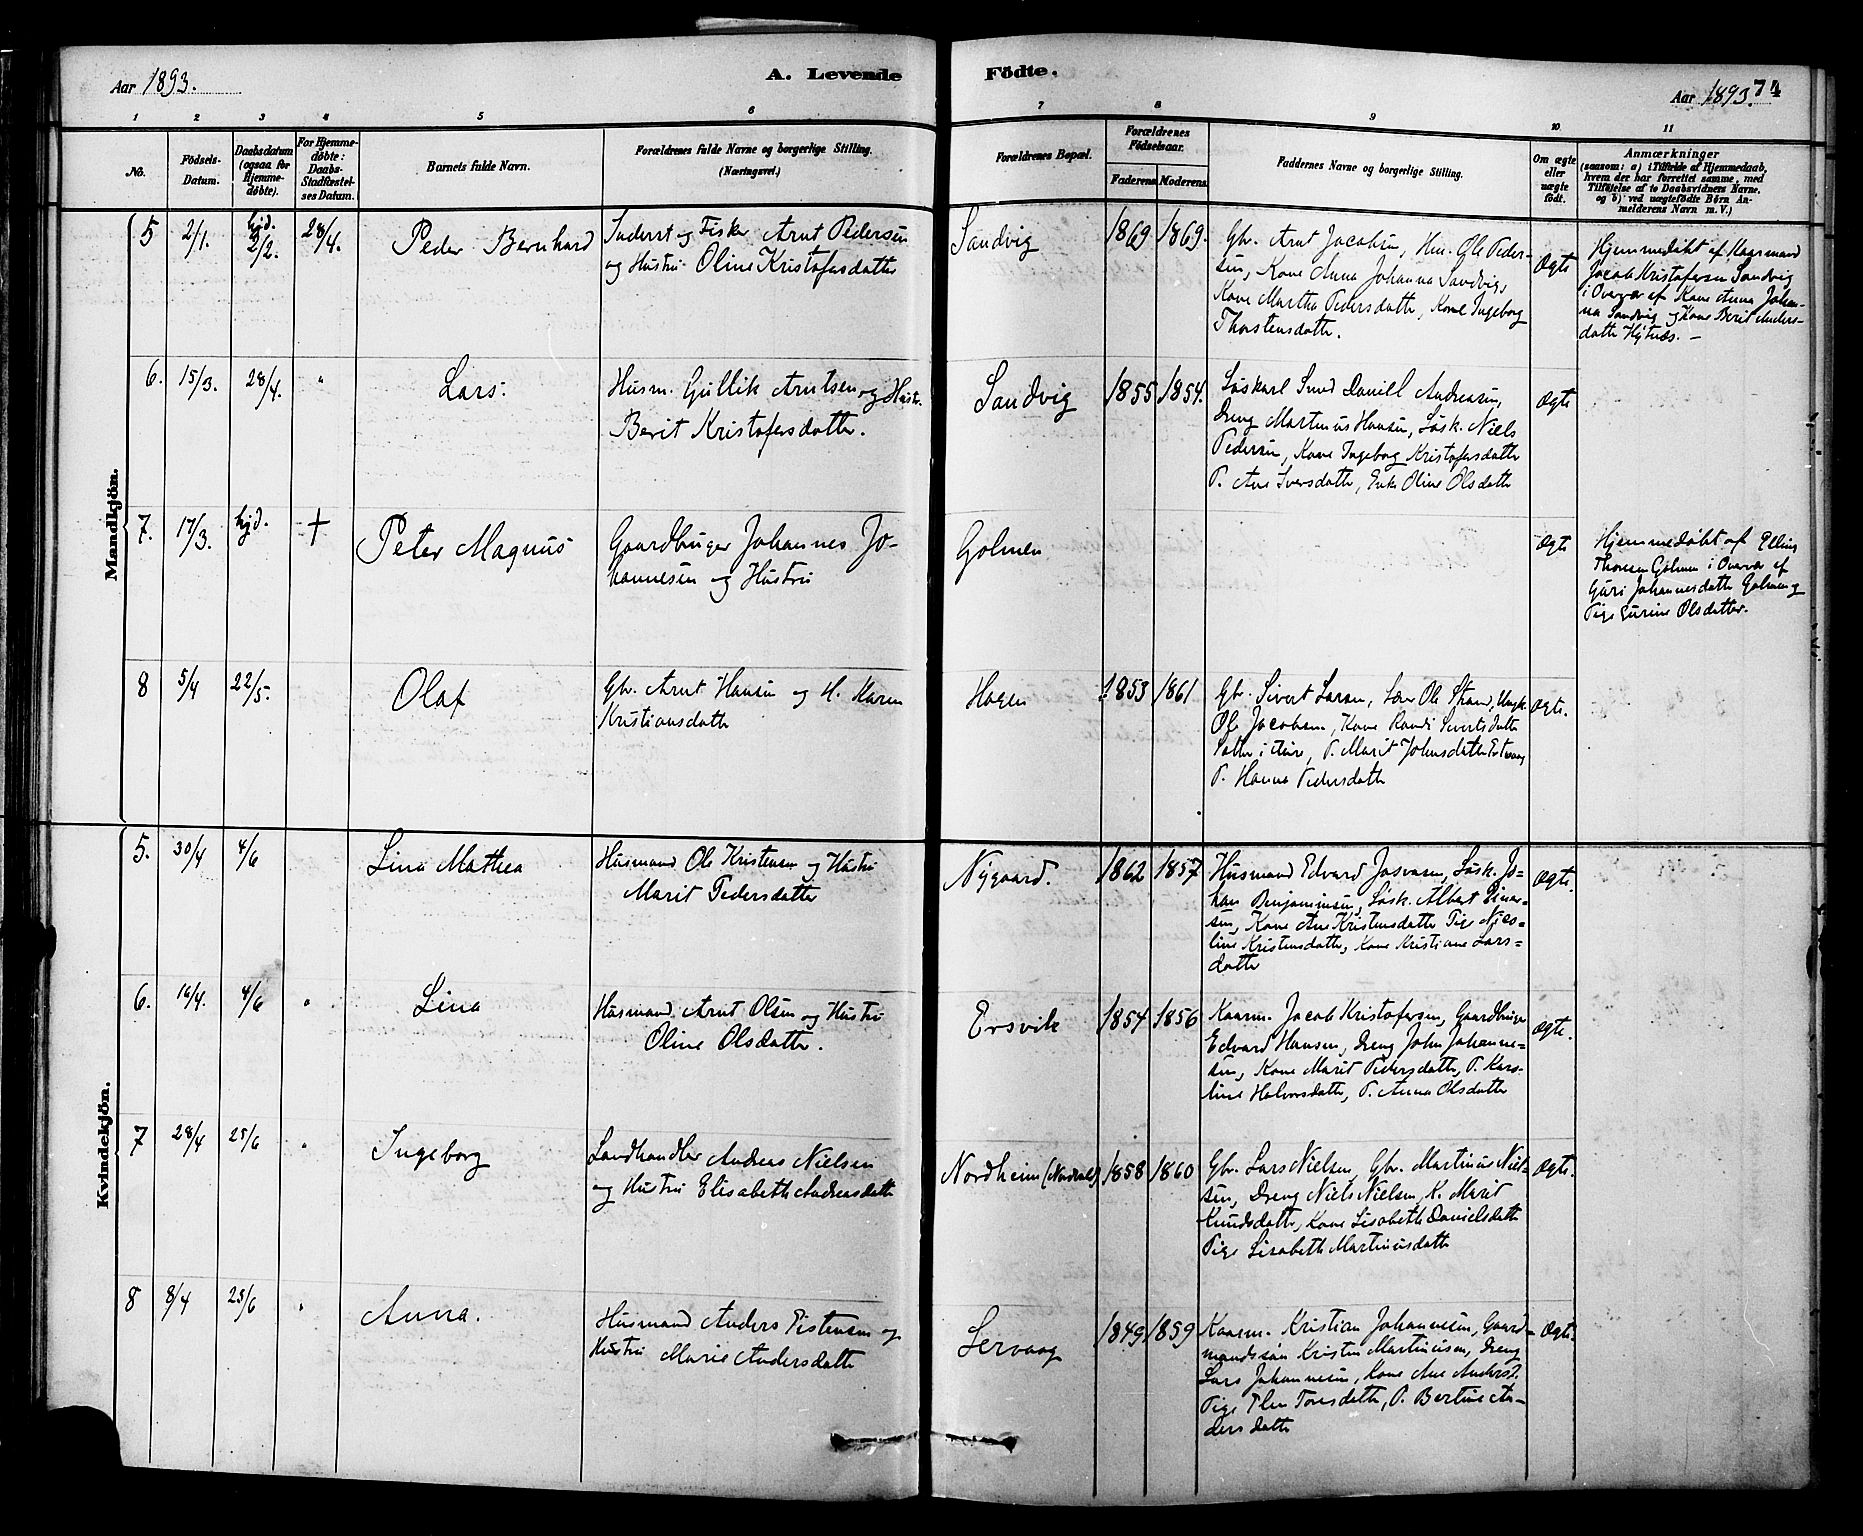 Aar 1893.
A. Levende Födte.
Aar 1893. 74
1 2 3 4 5 6 7 8 9 10 11
No.
Födsels-
Datum.
Daabsdatum
(ogsaa for
Hjemme-
döbte).
For Hjemme-
döbte:
Daabs-
Stadfæstel-
ses Datum.
Barnets fulde Navn.
Forældrenes fulde Navne og borgerlige Stilling.
(Næringsvei.)
Forældrenes Bopæl.
Forældrenes
Födselsaar.
Faderens. Moderens.
Faddernes Navne og borgerlige Stilling.
Om ægte
eller
uægte
födt.
Anmærkninger
(saasom: a) i Tilfælde af Hjemmedaab,
hvem der har forrettet samme, med
Tilföielse af to Daabsvidners Navne,
og b) ved uægtefödte Börn An-
melderens Navn m. V.)
Mandkjön.
5 2/1. hjd. 2/2. 28/4. Peder Bernhard
Inderst og Fisker Arnt Pedersen
og Hustru Oline Kristofersdatter
Sandvig 1869 1869.
Gbr. Arnt Jacobsen, Hm. Ole Peder-
sen, Kone Anna Johanna Sandvig,
Kone Martha Pedersdatter, Kone Ingeborg
Thorstensdatter.
Ægte
Hjemmedøbt af Kaarmand
Jacob Kristofersen Sandvig
i Overvær af Kone Anna Johan-
na Sandvig og Kone Berit Anders-
datter
6. 15/3. 28/4. " Lars.
Husm. Gullik Arntsen og Hustr.
Berit Kristofersdatter.
Sandvig 1855 1854.
Løskarl Daniel Andreasen,
Dreng Martinus Hansen, Løsk. Niels
Pedersen, Kone Ingeborg Kristofersdatter
P. Ane Iversdatter, Enke Oline Olsdatter
Ægte
7. 17/3. hjd. + Peter Magnus
Gaardbruger Johannes Jo-
hannesen og Hustru
Golmen
Ægte
Hjemmedøbt af Elling
Golmen i Overvær af
Guri Johannesdatter Golmen og
Pige Gurine Olsdatter.
8 5/4 22/5. Olaf
Gbr. Arnt Hansen og H. Karen
Kristiansdatter
Hagen 1853 1861
Gbr. Sivert Larsen, Lær Ole Strand, Ungk.
Ole Jacobsen, Kone Randi Sivertsdatter
P. Marit Johnsdatter
P. Hanna Pedersdatter
Ægte.
Kvindekjön.
5. 30/4 4/6 Lina Mathea
Husmand Ole Kristensen og Hustru
Marit Pedersdatter
Nygaard. 1862 1857
Husmand Edvard Josvasen, Løsk. Jo-
han Benjaminsen, Løsk. Albert Einar-
sen, Kone Ane Kristensdatter Pige Niko-
line Kristensdatter, Kone Kristiane Lars-
datter
Ægte.
6. 16/4. 4/6 " Lina
Husmand Arnt Olsen og Hustru
Oline Olsdatter.
Ersvik 1854 1856
Kaarm. Jacob Kristofersen, Gaardbruger
Edvard Hansen, Dreng John Johanne-
sen, Kone Marit Pedersdatter, P. Karo-
line Halvorsdatter, P. Anna Olsdatter
Ægte.
7 28/4 25/6 " Ingeborg
Landhandler Andreas Nielsen
og Hustru Elisabeth Andreasdatter
Nordheim 1858 1860
Gbr. Lars Nielsen, Gbr. Martinus Niel-
sen, Dreng Niels Nielsen, K. Marit
Knudsdatter, Kone Lisabeth Danielsdatter
Pige Lisabeth Martinusdatter
Ægte.
8 8/4 25/6 " Anna.
Husmand Anders Pistensen og
Hustru Marie Andersdatter
Lervaag 1849 1859
Kaarm. Kristian Johannesen, Gaard-
mandssøn Kristen Martinusen, Dreng
Lars Johannesen, Kone Ane Andersd.
Pige Elen Toresdatter, P. Bertine An-
dersdatter
Ægte.